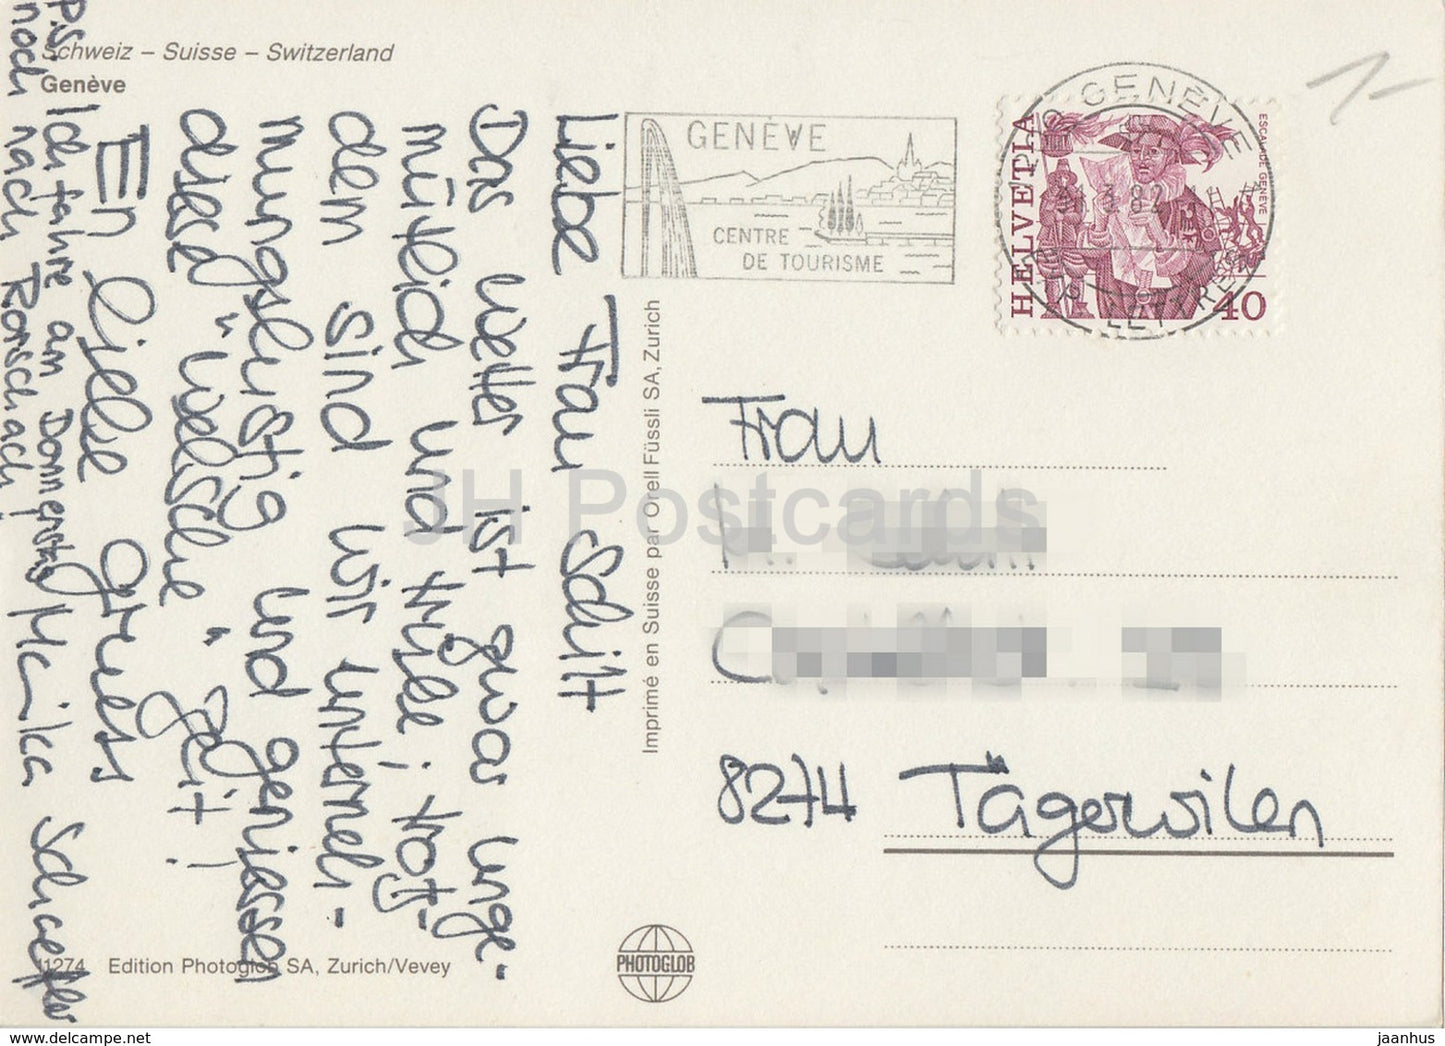 Schweiz – Suisse – Switzerland
Genève
Liebe Frau Schilt
Das Wetter ist zwar unge-
mütlich und trübe; trotz-
dem sind wir unterneh-
mungslustig und geniessen
diese "welsche" Zeit!
En liebe Gruess
Monika Schaeffler
P.S.
Ich fahre am Donnerstag
noch nach Rorschach
11274 Edition Photoglob SA, Zurich/Vevey
Imprimé en Suisse par Orell Füssli SA, Zurich
PHOTOGLOB
GENÈVE
CENTRE
DE TOURISME
GENÈVE
3.82
LETTRES
HELVETIA
ESCALADE GENEVE
40
1-
Frau
8274 Tägerwilen
JH Postcards
jaanhus